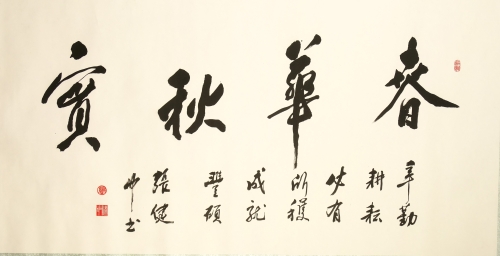 春華秋實
辛勤
耕耘
必有
所穫
成就
豐碩
張健
书